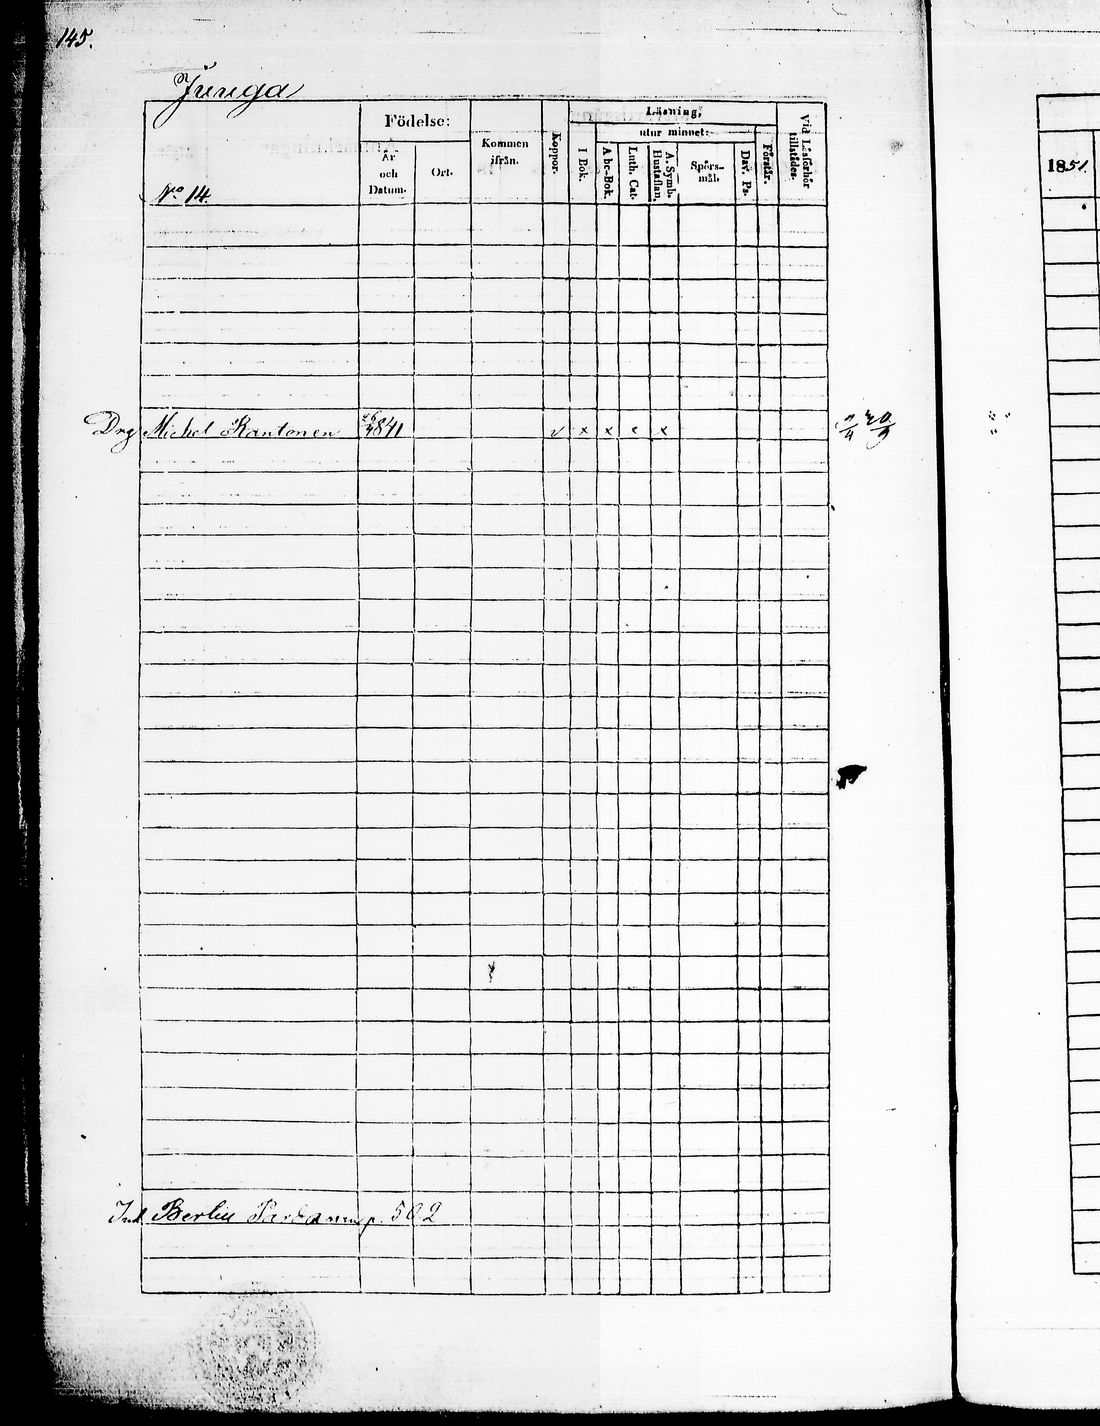 145.
Junga
No 14.
Födelse:
År och Datum.
Ort.
Kommen ifrån.
Koppor.
Läsning,
utur minnet:
I Bok.
Abc-Bok.
Luth. Cat.
A. Symb. Hustaflan.
Spörs-mål.
Dav. Ps.
Förstår.
Vid Läsförhör tillstädes.
1851.
Drg Michel Rantonen 26/4 841 v x x x x
Inh Berlin p. 502